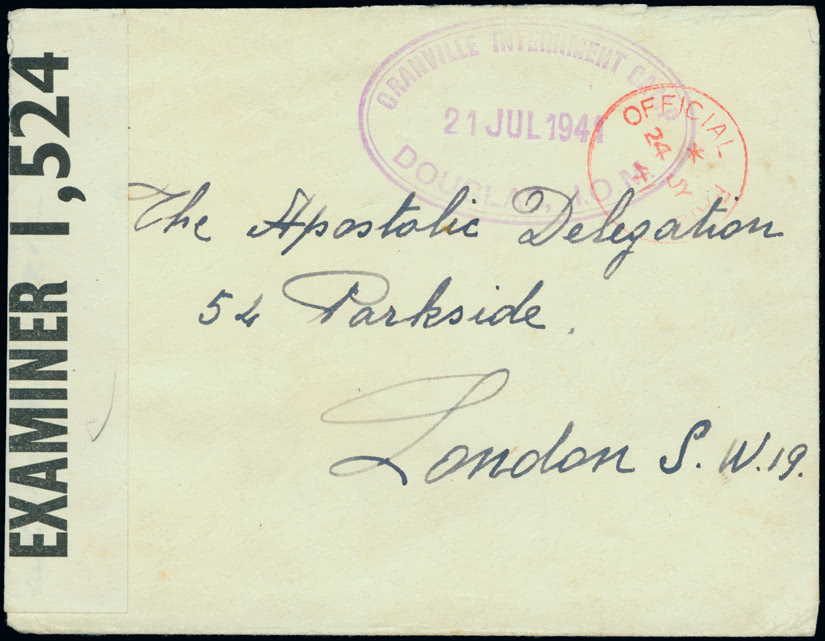 EXAMINER 1,524
GRANVILLE INTERNMENT CAMP
21 JUL 1941
DOUGLAS, I.O.M.
OFFICIAL
24 JY
The Apostolic Delegation
54 Parkside.
London S.W.19.